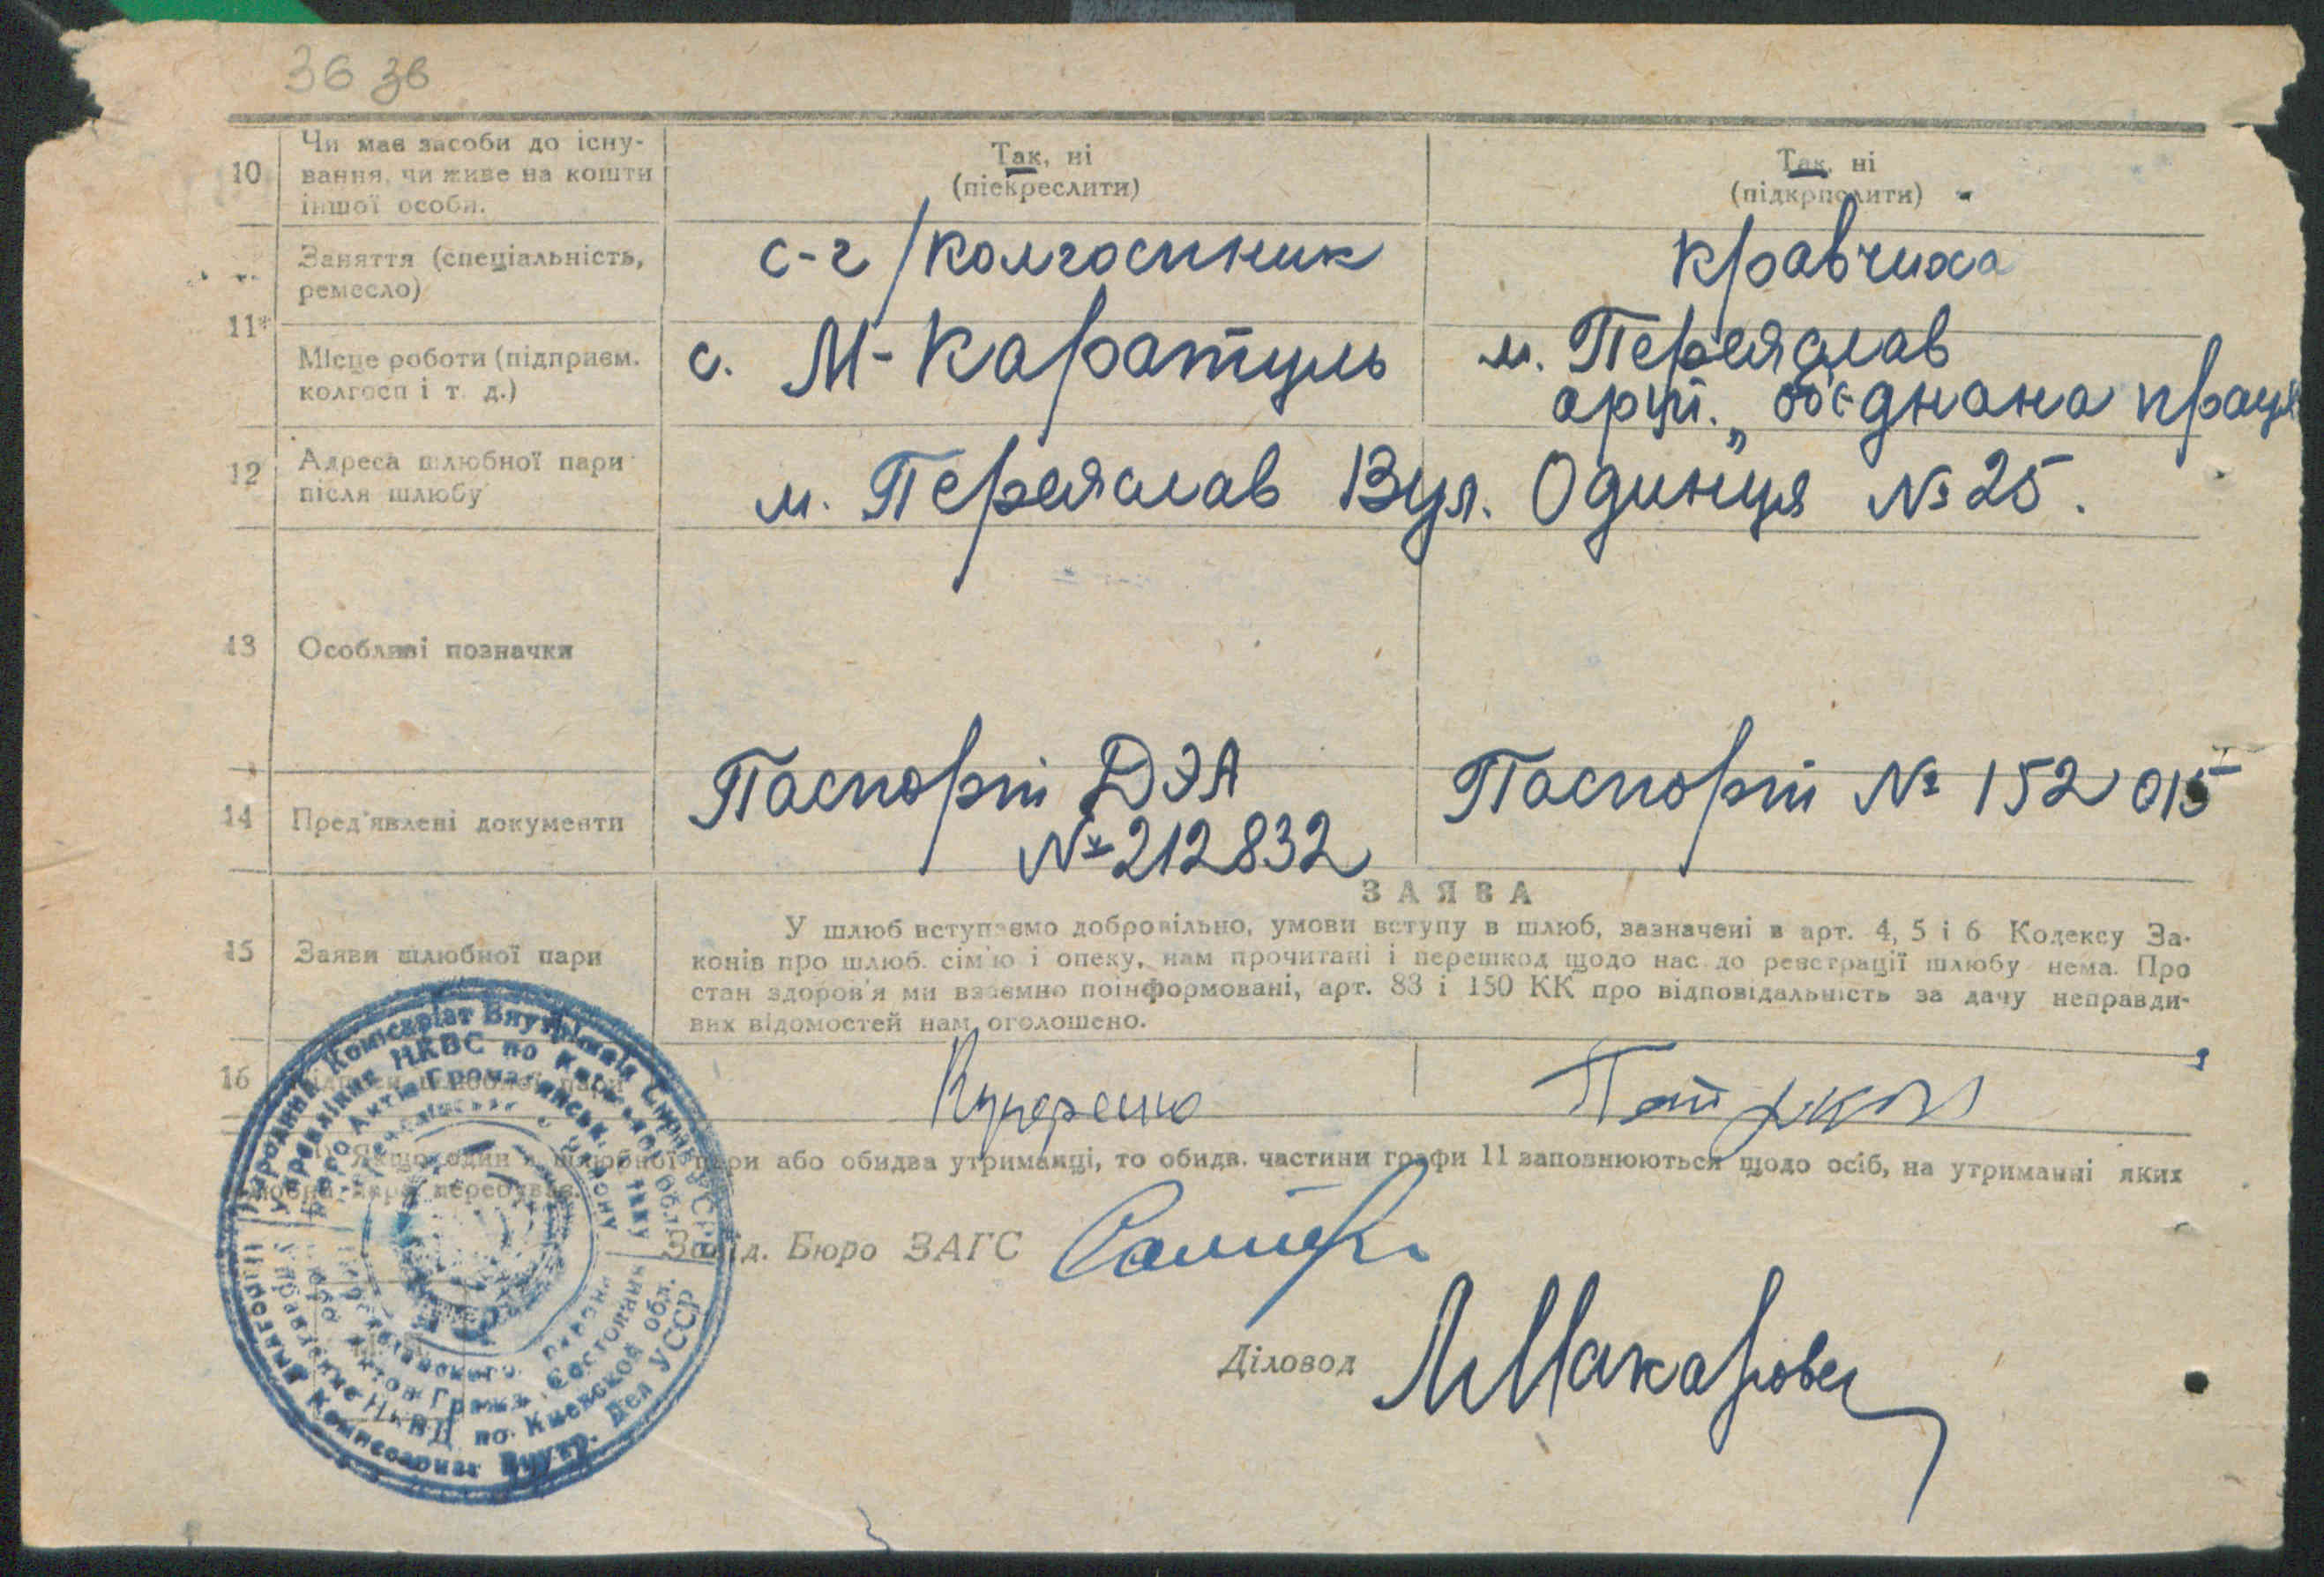 36 зв
10
Чи має засоби до існу-
вання, чи живе на кошти
іншої особи.
Так, ні
(піекреслити)
Так, ні
(підкрпслити)
11*
Заняття (спеціальність,
ремесло)
с-г/колгоспник
кравчиха
Місце роботи (підприєм.
колгосп і т. д.)
с. М-Каратуль
м. Переяслав
арт. „об'єднана праця
12
Адреса шлюбної пари
після шлюбу
м. Переяслав Вул. Одинця №25.
13
Особливі позначки
14
Пред'явлені документи
Паспорт ДЭА
№212832
Паспорт № 152015
15
Заяви шлюбної пари
ЗАЯВА
У шлюб вступаємо добровільно, умови вступу в шлюб, зазначені в арт. 4, 5 і 6 Кодексу За-
конів про шлюб. сім'ю і опеку, нам прочитані і перешкод щодо нас до реєстрації шлюбу нема. Про
стан здоров'я ми взаємно поінформовані, арт. 83 і 150 КК про відповідальність за дачу неправди-
вих відомостей нам оголошено.
16
Підписи шлюбної пари
1) Якщо один з шлюбної пари або обидва утриманці, то обидв. частини графи 11 заповнюються щодо осіб, на утриманні яких
шлюбна пара перебуває.
Завід. Бюро ЗАГС
Діловод
Народний Комісаріат Внутрішніх Справ УСРР
Управління НКВС по Київській обл.
Бюро Актів Громадянськ. стану
Бюро Актов Гражд. Состояния
Управление НКВД по Киевской обл.
Народный Комиссариат Внутр. Дел УССР